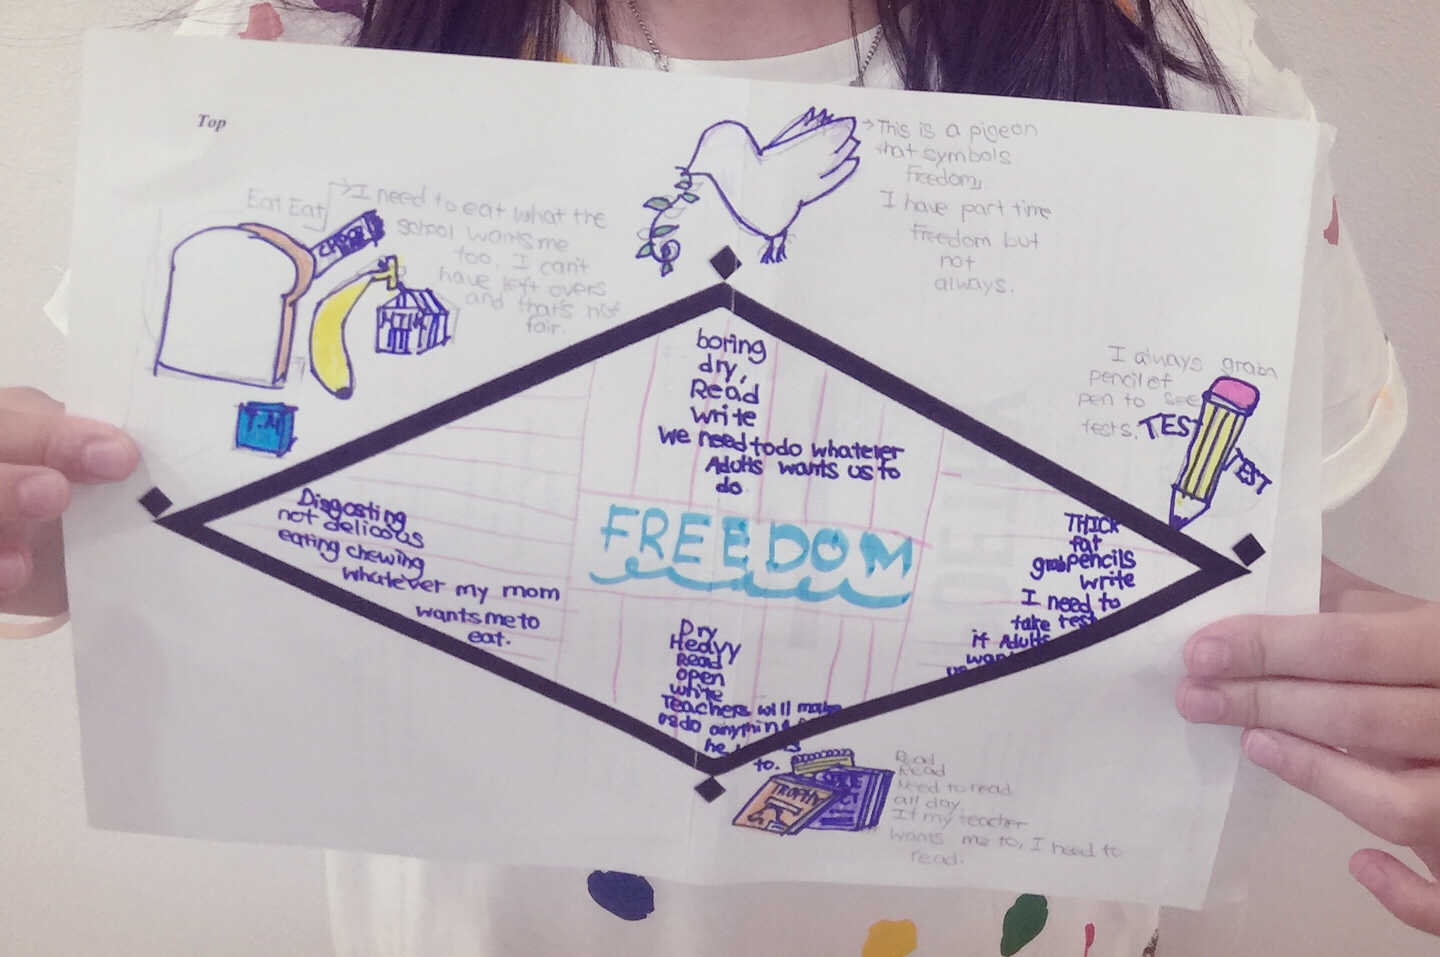 Top
Eat Eat
I need to eat what the
school wants me
too. I can't
have left overs
and that's not
fair.
This is a pigeon
that symbols
freedom,
I have part time
freedom but
not
always.
I always grabn
pencil of
pen to see
tests.
TEST
TEST
boring
dry,
Read
write
we need to do whatever
Adults wants us to
do
FREEDOM
Disgosting
not delicous
eating chewing
whatever my mom
wants me to
eat.
THICK
fat
grab pencils
write
I need to
take test
if Adults
Dry
Heavy
Read
open
white
Teachers will make
us do anything
he
to.
TROPHY
Read
Read
Need to read
all day.
If my teacher
wants me to, I need to
read.